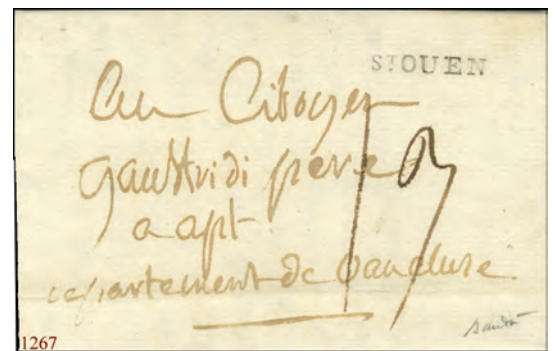 St OUEN
Au Citoyen
gauffridi pere
a apt
departement de Vaucluse
1267